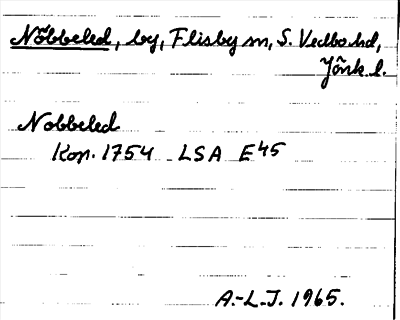 Nöbbeled, by, Flisby sn, S. Vedbo hd,
Jönk. l.
Nobbeled
Kop. 1754 LSA E45
A.-L.J. 1965.